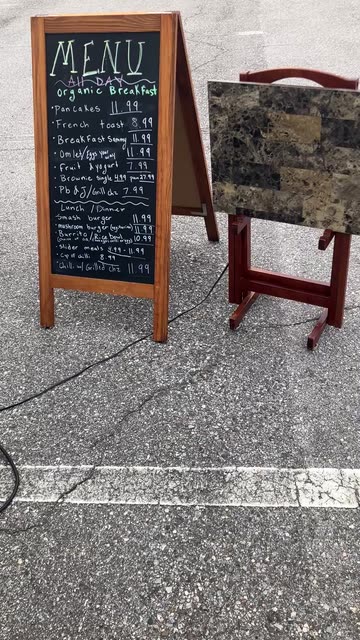 MENU
All DAY
organic Breakfast
• Pancakes 11.99
• French toast 8.99
• Breakfast Sammy 11.99
• Omlet/Eggs your way 11.99
• Fruit & yogurt 7.99
• Brownie single 4.99 pan 27.99
• Pb & J/Grill chz 7.99
Lunch/Dinner
Smash burger 11.99
• mushroom burger 11.99
Burrito/Rice bowl 10.99
• slider meals 4.99 - 11.99
• cup of chilli 8.99
• Chilli w/ Grilled chz 11.99